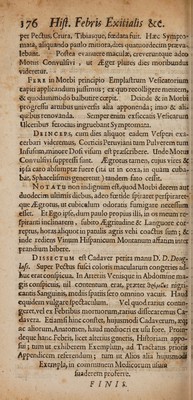 176 Hist. Febris Exitialis &c.
per Pectus, Crura, Tibiasque, fœdata fuit. Hæc Sympto-
mata, aliquando paulo minora, dies quatuordecim præva-
lebant. Postea evanuere maculæ, creverunque adeo
Motus Convulsivi, ut Æger plures dies moribundus
videretur.
FERE in Morbi principio Emplastrum Vesicatorium
capiti applicandum jussimus; ex quo recolligere mentem,
& quodammodo balbutire cœpit. Deinde & in Morbi
progressu artubus universis alia apponenda; imo & ali-
quibus renovanda. Semper enim exsiccatis Vesicarum
Ulceribus sotocius ingruebant Symptomata.
DEINCEPS, cum dies aliquot eadem Vesperi ex-
cerbari viderentur, Corticis Peruviani tum Pulverem tum
Infusum, manore Dosi visum est præscribere. Unde Motus
Convulsivi suppressi sunt. Ægrotus tamen, cujus vires &
ipsa caro absumptæ fuere (ita ut in coxa, in quam cuba-
bat, Sphacelismus generetur) tandem loco cessit.
NOTATU non indignum est, quod Morbi decem aut
duodecim ultimis diebus, adeo fœtide spirare perspiraret-
que Ægrotus, ut cubiculo odoratu fumigare necessum
esset. Et Ego ipse, dum paulo propius illi, in os meum re-
spiranti inclinarem, subito Ægritudine & Languore cor-
reptus, horas aliquot in patulis agris velu exactibus sum; &
inde rediens Vinum Hispanicum Montanum affatim inter
prandium bibere.
DISSECTUM est Cadaver petita manu D. D. Doug-
lass. Super Pectus fusci coloris macularum congeries ad-
huc erat conspicua. In Arteriis Venisque in Abdomine ma-
gis conspicuis, nil contentum erat, præter nigri-
cantis Sanguinis, multis spatiis sero omnino vacui. Haud
equidem vulgare spectaculum. Vel quod rarius contin-
geret, vel ex Febribus mortuorum, rarius dissecarentur Ca-
davera. Etiamsi hinc constet, hujusmodi Cadaverum, seq
ac aliorum, Anatomen, haud modioeri ex usu fore. Proin-
deque hanc Febris, licet alterius generis, Historiam appo-
sui; tum ut exhiberem Exemplum, ad Tractatus prioris
Appendicem referendum; tum ut Alios alia hujusmodi
Exempla, in communem Medicorum usum
suaderem proferre.
FINIS.